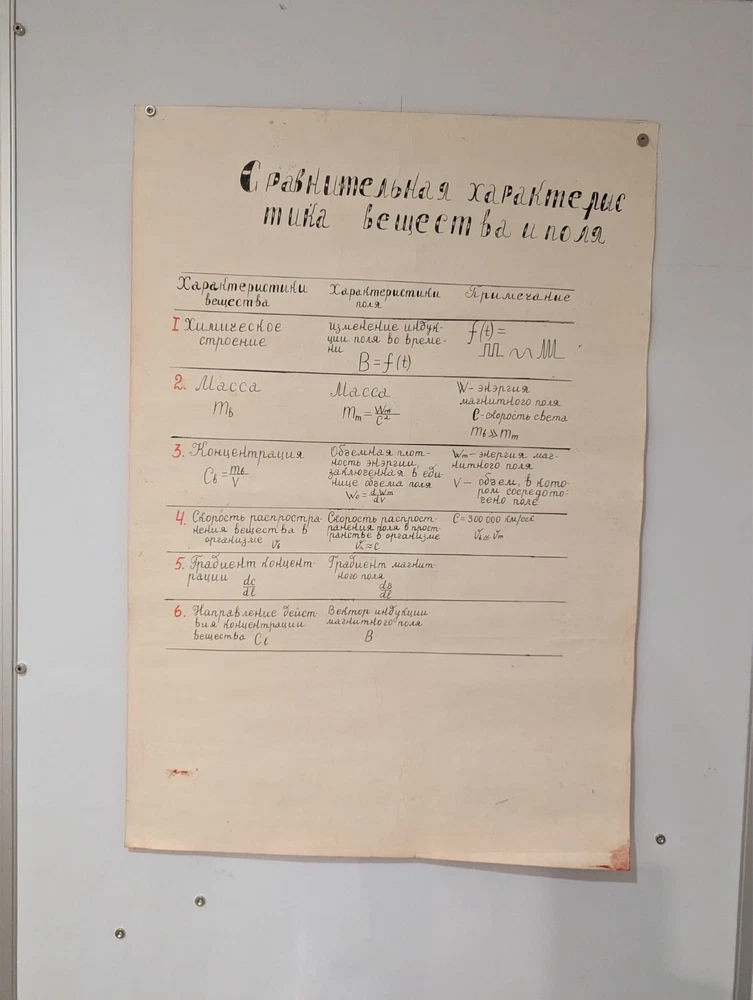 Сравнительная характерис
тика вещества и поля
Характеристики
вещества
Характеристики
поля
Примечание
I Химическое
строение
изменение индук-
ции поля во време-
ни
B = f(t)
f(t) =
2. Масса
m_b
Масса
m_m = W_m/C²
W - энергия
магнитного поля
C - скорость света
m_b ≫ m_m
3. Концентрация
C_b = m_b/V
Объемная плот-
ность энэргии,
заключенная в еди-
нице объема поля
W_o = dW_m/dV
W_m - энергия маг-
нитного поля
V — объем, в кото-
ром сосредото-
чено поле
4. Скорость распростра-
нения вещества в
организме v_b
Скорость распрост-
ранения поля в прост-
ранстве в организме
v_m ≈ C
C = 300 000 км/сек
v_b ≪ v_m
5. Градиент концент-
рации dc/dl
Градиент магнит-
ного поля
dB/dl
6. Направление дейст-
вия концентрации
вещества C_b
Вектор индукции
магнитного поля
B